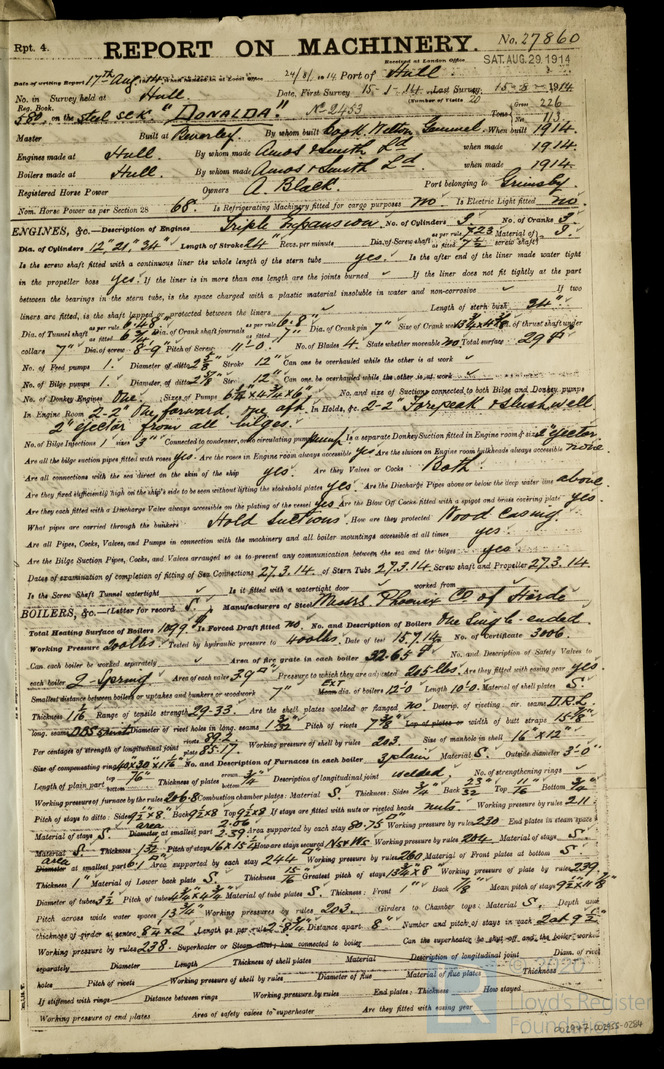 Rpt. 4.
REPORT ON MACHINERY.
No. 27860
Received at London Office SAT. AUG. 29. 1914
Date of writing Report 17th Aug. 14 When handed in at Local Office 24/8/ 10 14 Port of Hull
No. in Survey held at Hull Date, First Survey 15-1-14 Last Survey 15-8-1914
Reg. Book. (Number of Visits 20
580 on the steel sck "DONALDA" No 2453 Tons Gross 226 Net 113
Master Built at Beverley By whom built Cook, Welton, Gemmell When built 1914.
Engines made at Hull By whom made Amos & Smith Ld when made 1914.
Boilers made at Hull. By whom made Amos & Smith Ld when made 1914.
Registered Horse Power Owners A. Black. Port belonging to Grimsby
Nom. Horse Power as per Section 28 68. Is Refrigerating Machinery fitted for cargo purposes no. Is Electric Light fitted no.
ENGINES, &c.—Description of Engines Triple Expansion No. of Cylinders 3 No. of Cranks 3
Dia. of Cylinders 12", 21", 34" Length of Stroke 24" Revs. per minute Dia. of Screw shaft as per rule 7.23 as fitted 7½ Material of screw shaft
Is the screw shaft fitted with a continuous liner the whole length of the stern tube yes. Is the after end of the liner made water tight
in the propeller boss yes. If the liner is in more than one length are the joints burned If the liner does not fit tightly at the part
between the bearings in the stern tube, is the space charged with a plastic material insoluble in water and non-corrosive If two
liners are fitted, is the shaft lapped or protected between the liners Length of stern bush 34"
Dia. of Tunnel shaft as per rule 6.48" as fitted 6¾ Dia. of Crank shaft journals as per rule 6.8" as fitted 7" Dia. of Crank pin 7" Size of Crank webs 13¾ x 4⅜ Dia. of thrust shaft under
collars 7" Dia. of screw 8-9 Pitch of Screw 11-0. No. of Blades 4. State whether moveable no. Total surface 29
No. of Feed pumps 1. Diameter of ditto 2⅝ Stroke 12" Can one be overhauled while the other is at work
No. of Bilge pumps 1. Diameter of ditto 2⅝ Stroke 12" Can one be overhauled while the other is at work
No. of Donkey Engines One. Sizes of Pumps No. and size of Suctions connected to both Bilge and Donkey pumps
In Engine Room 2-2" One forward, one aft. In Holds, &c. 2-2" Forepeak & slushwell.
2" ejector from all bilges.
No. of Bilge Injections 1 sizes 3" Connected to condenser, or to circulating pump pump Is a separate Donkey Suction fitted in Engine room & size 2" ejector
Are all the bilge suction pipes fitted with roses yes. Are the roses in Engine room always accessible yes Are the sluices on Engine room bulkheads always accessible none
Are all connections with the sea direct on the skin of the ship yes Are they Valves or Cocks Both.
Are they fixed sufficiently high on the ship's side to be seen without lifting the stokehold plates yes. Are the Discharge Pipes above or below the deep water line above.
Are they each fitted with a Discharge Valve always accessible on the plating of the vessel yes Are the Blow Off Cocks fitted with a spigot and brass covering plate yes.
What pipes are carried through the bunkers Hold Suctions. How are they protected Wood casing.
Are all Pipes, Cocks, Valves, and Pumps in connection with the machinery and all boiler mountings accessible at all times yes.
Are the Bilge Suction Pipes, Cocks, and Valves arranged so as to prevent any communication between the sea and the bilges yes
Dates of examination of completion of fitting of Sea Connections 27.3.14. of Stern Tube 27.3.14. Screw shaft and Propeller 27.3.14
Is the Screw Shaft Tunnel watertight Is it fitted with a watertight door worked from
BOILERS, &c.—(Letter for record S. Manufacturers of Steel Messrs Phoenix Co of Horde
Total Heating Surface of Boilers 1099 Is Forced Draft fitted no. No. and Description of Boilers One single-ended
Working Pressure 200lbs Tested by hydraulic pressure to 400lbs. Date of test 15.7.14. No. of Certificate 3006.
Can each boiler be worked separately Area of fire grate in each boiler 32.65 No. and Description of Safety Valves to
each boiler 2-Spring Area of each valve 3.9 Pressure to which they are adjusted 205lbs. Are they fitted with easing gear yes
Smallest distance between boilers or uptakes and bunkers or woodwork 7" Mean dia. of boilers 12-0 Length 10-0. Material of shell plates S
Thickness Range of tensile strength 29-33. Are the shell plates welded or flanged no Descrip. of riveting: cir. seams D.R.L
long. seams Diameter of rivet holes in long. seams 1 3/32 Pitch of rivets 7⅝ Lap of plates or width of butt straps 15⅞
Per centages of strength of longitudinal joint rivets 89.2 plate 85.17 Working pressure of shell by rules 203 Size of manhole in shell 16" x 12"
Size of compensating ring No. and Description of Furnaces in each boiler 3 plain Material S. Outside diameter 3-0
Length of plain part Thickness of plates Description of longitudinal joint welded. No. of strengthening rings
Working pressure of furnace by the rules 206.8 Combustion chamber plates: Material S. Thickness: Sides Back 23/32 Top 11/16 Bottom ¾
Pitch of stays to ditto: Sides 9½ x 8" Back 9½ x 8 Top 9½ x 8 If stays are fitted with nuts or riveted heads nuts. Working pressure by rules 211.
Material of stays S. area Diameter at smallest part 2.39 Area supported by each stay 80.75 Working pressure by rules 230 End plates in steam space
Material S. Thickness 1 3/32 Pitch of stays 16 x 15½ How are stays secured Working pressure by rules 204 Material of stays S
area Diameter at smallest part 6.1 Area supported by each stay 244 Working pressure by rules 260 Material of Front plates at bottom S
Thickness 1" Material of Lower back plate S Thickness 15/16 Greatest pitch of stays 13¾ x 8 Working pressure of plate by rules 239
Diameter of tubes 3½ Pitch of tubes Material of tube plates S. Thickness: Front 1" Back ⅞ Mean pitch of stays
Pitch across wide water spaces 13¾" Working pressures by rules 203. Girders to Chamber tops: Material S. Depth and
thickness of girder at centre 8¼ x 2 Length as per rule 2-8¼ Distance apart 8" Number and pitch of stays in each 2 at 9½"
Working pressure by rules 238. Superheater or Steam chest; how connected to boiler Can the superheater be shut off and the boiler worked
separately Diameter Length Thickness of shell plates Material Description of longitudinal joint Diam. of rivet
holes Pitch of rivets Working pressure of shell by rules Diameter of flue Material of flue plates Thickness
If stiffened with rings Distance between rings Working pressure by rules End plates: Thickness How stayed
Working pressure of end plates Area of safety valves to superheater Are they fitted with easing gear
Lloyd's Register
Foundation
002947-002955-0284